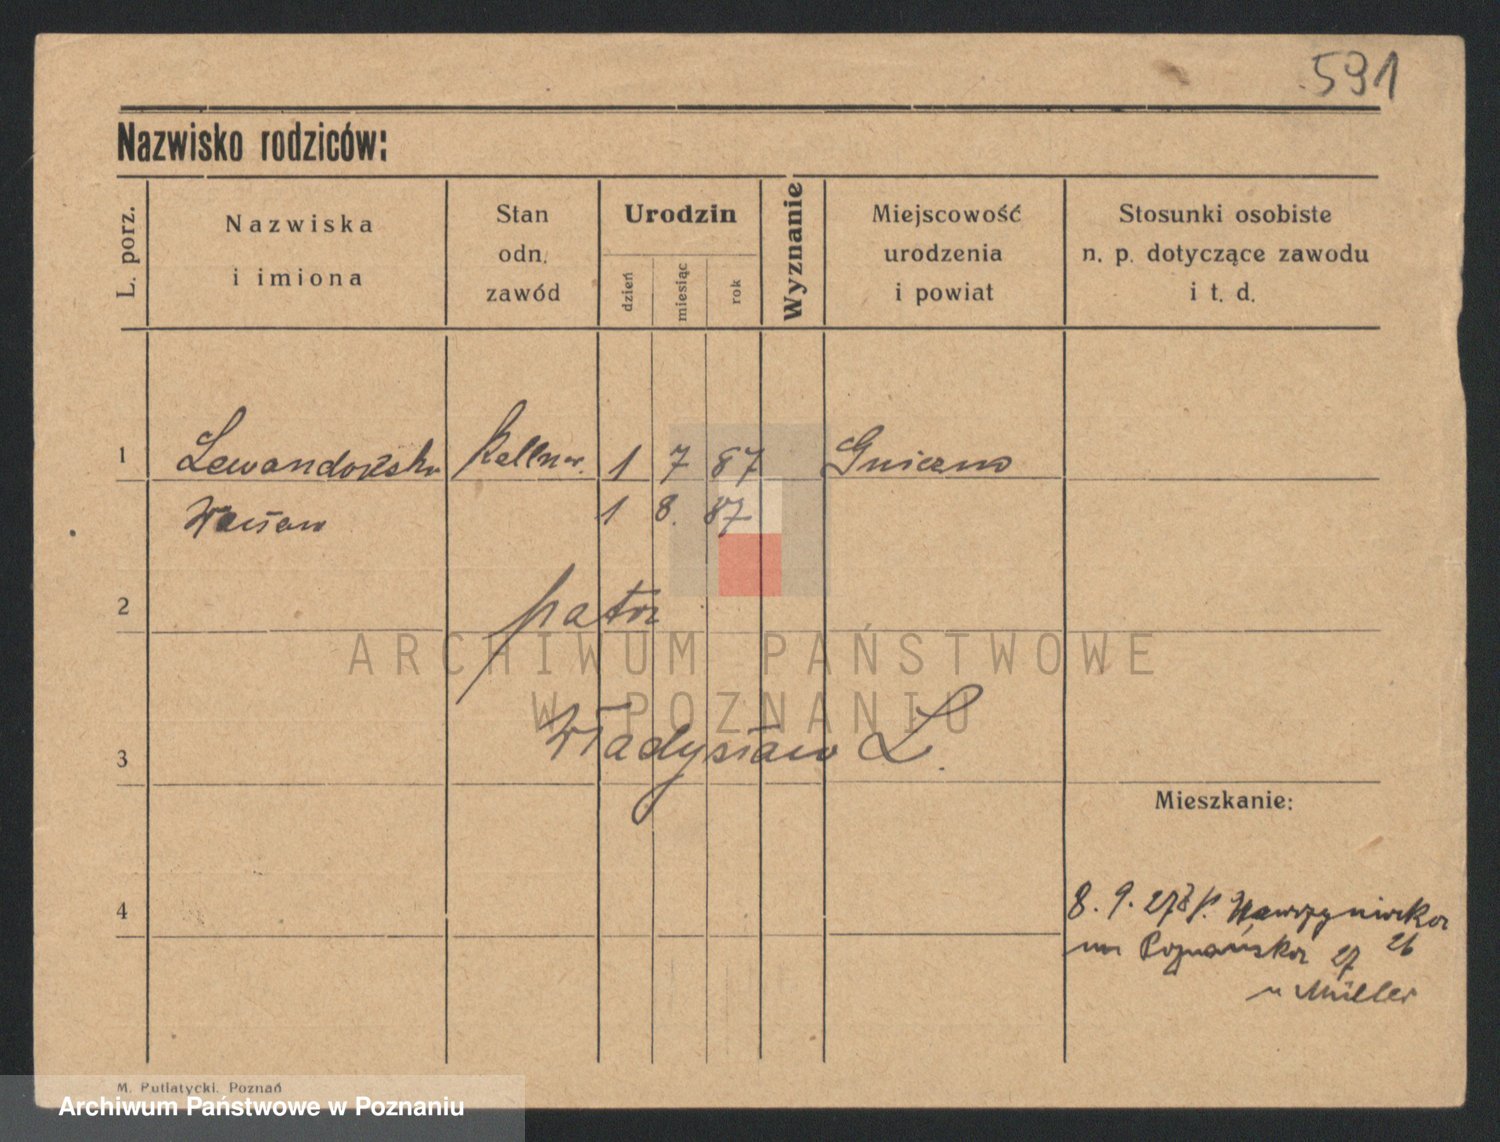 591
Nazwisko rodziców:
L. porz.
Nazwiska
i imiona
Stan
odn.
zawód
Urodzin
dzień
miesiąc
rok
Wyznanie
Miejscowość
urodzenia
i powiat
Stosunki osobiste
n. p. dotyczące zawodu
i t. d.
1 Lewandowski Kellner 1 7 87 Gniezno
Wacław 1 8. 87
2 patrz
ARCHIWUM PAŃSTWOWE
W POZNANIU
3 Władysław L.
Mieszkanie:
4 8. 9. 27 Wawrzyniecka 26
na Poznańska 27
u Müller
M. Putlatycki, Poznań
Archiwum Państwowe w Poznaniu